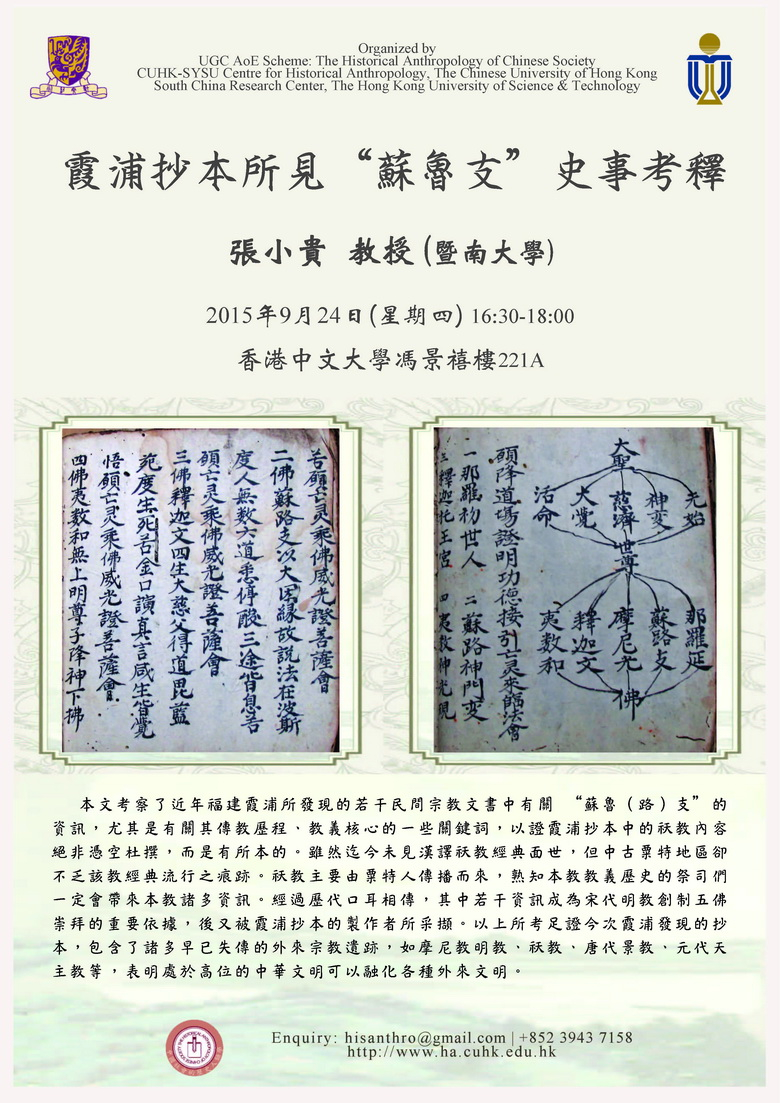 Organized by
UGC AoE Scheme: The Historical Anthropology of Chinese Society
CUHK-SYSU Centre for Historical Anthropology, The Chinese University of Hong Kong
South China Research Center, The Hong Kong University of Science & Technology
霞浦抄本所見“蘇魯支”史事考釋
張小貴 教授(暨南大學)
2015年9月24日(星期四) 16:30-18:00
香港中文大學馮景禧樓221A
苦願亡灵乘佛威光證菩薩會
二佛蘇路支以大因緣故說法在波斯
度人無数六道悉停酸三途皆息苦
願亡灵乘佛威光證菩薩會
三佛釋迦文四生大慈父得道毘藍
苑度生死苦金口演真言咸生皆覺
悟願亡灵乘佛威光證菩薩會
四佛夷数和無上明尊子降神下拂
大聖
元始
神变
慈濟
大覺
活命
世尊
那羅延
蘇路支
摩尼光
釋迦文
夷数和
佛
願降道場證明功德接引亡灵來臨法會
一那羅初世人 二蘇路神門变
三釋迦托王宮 四夷数神光現
本文考察了近年福建霞浦所發現的若干民間宗教文書中有關 “蘇魯(路)支”的
資訊，尤其是有關其傳教歷程、教義核心的一些關鍵詞，以證霞浦抄本中的祆教內容
絕非憑空杜撰，而是有所本的。雖然迄今未見漢譯祆教經典面世，但中古粟特地區卻
不乏該教經典流行之痕跡。祆教主要由粟特人傳播而來，熟知本教教義歷史的祭司們
一定會帶來本教諸多資訊。經過歷代口耳相傳，其中若干資訊成為宋代明教創制五佛
崇拜的重要依據，後又被霞浦抄本的製作者所采擷。以上所考足證今次霞浦發現的抄
本，包含了諸多早已失傳的外來宗教遺跡，如摩尼教明教、祆教、唐代景教、元代天
主教等，表明處於高位的中華文明可以融化各種外來文明。
Enquiry: hisanthro@gmail.com | +852 3943 7158
http://www.ha.cuhk.edu.hk